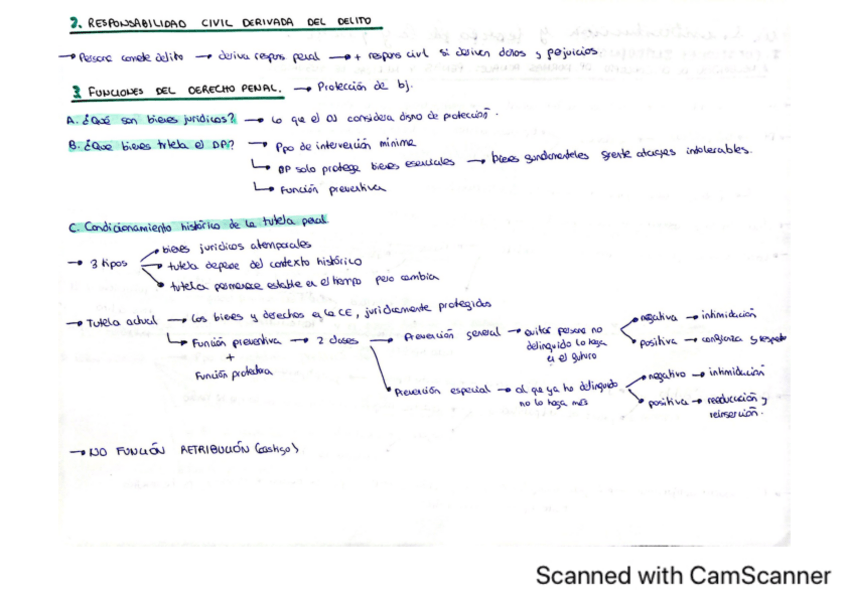 2. RESPONSABILIDAD CIVIL DERIVADA DEL DELITO
→ Persona comete delito → deriva respons penal → + respons civil si derivan daños y perjuicios
3 FUNCIONES DEL DERECHO PENAL. → Protección de bj.
A. ¿Qué son bienes jurídicos? → Lo que el OJ considera digno de protección.
B. ¿Que bienes tutela el DP? → Ppo de intervención mínima
↳ DP solo protege bienes esenciales → bienes fundamentales frente ataques intolerables.
↳ Función preventiva
C. Condicionamiento histórico de la tutela penal
→ 3 tipos
bienes jurídicos atemporales
tutela depende del contexto histórico
tutela permanece estable en el tiempo pero cambia
→ Tutela actual → Los bienes y derechos en la CE, jurídicamente protegidos
↳ Función preventiva → 2 clases → Prevención general → evitar persona no delinquido lo haga en el futuro
negativa → intimidación
positiva → confianza y respeto
+
Función protectora
Prevención especial → al que ya ha delinquido no lo haga más
negativo → intimidación
positiva → reeducación y reinserción.
→ NO FUNCIÓN RETRIBUCIÓN (castigo)
Scanned with CamScanner